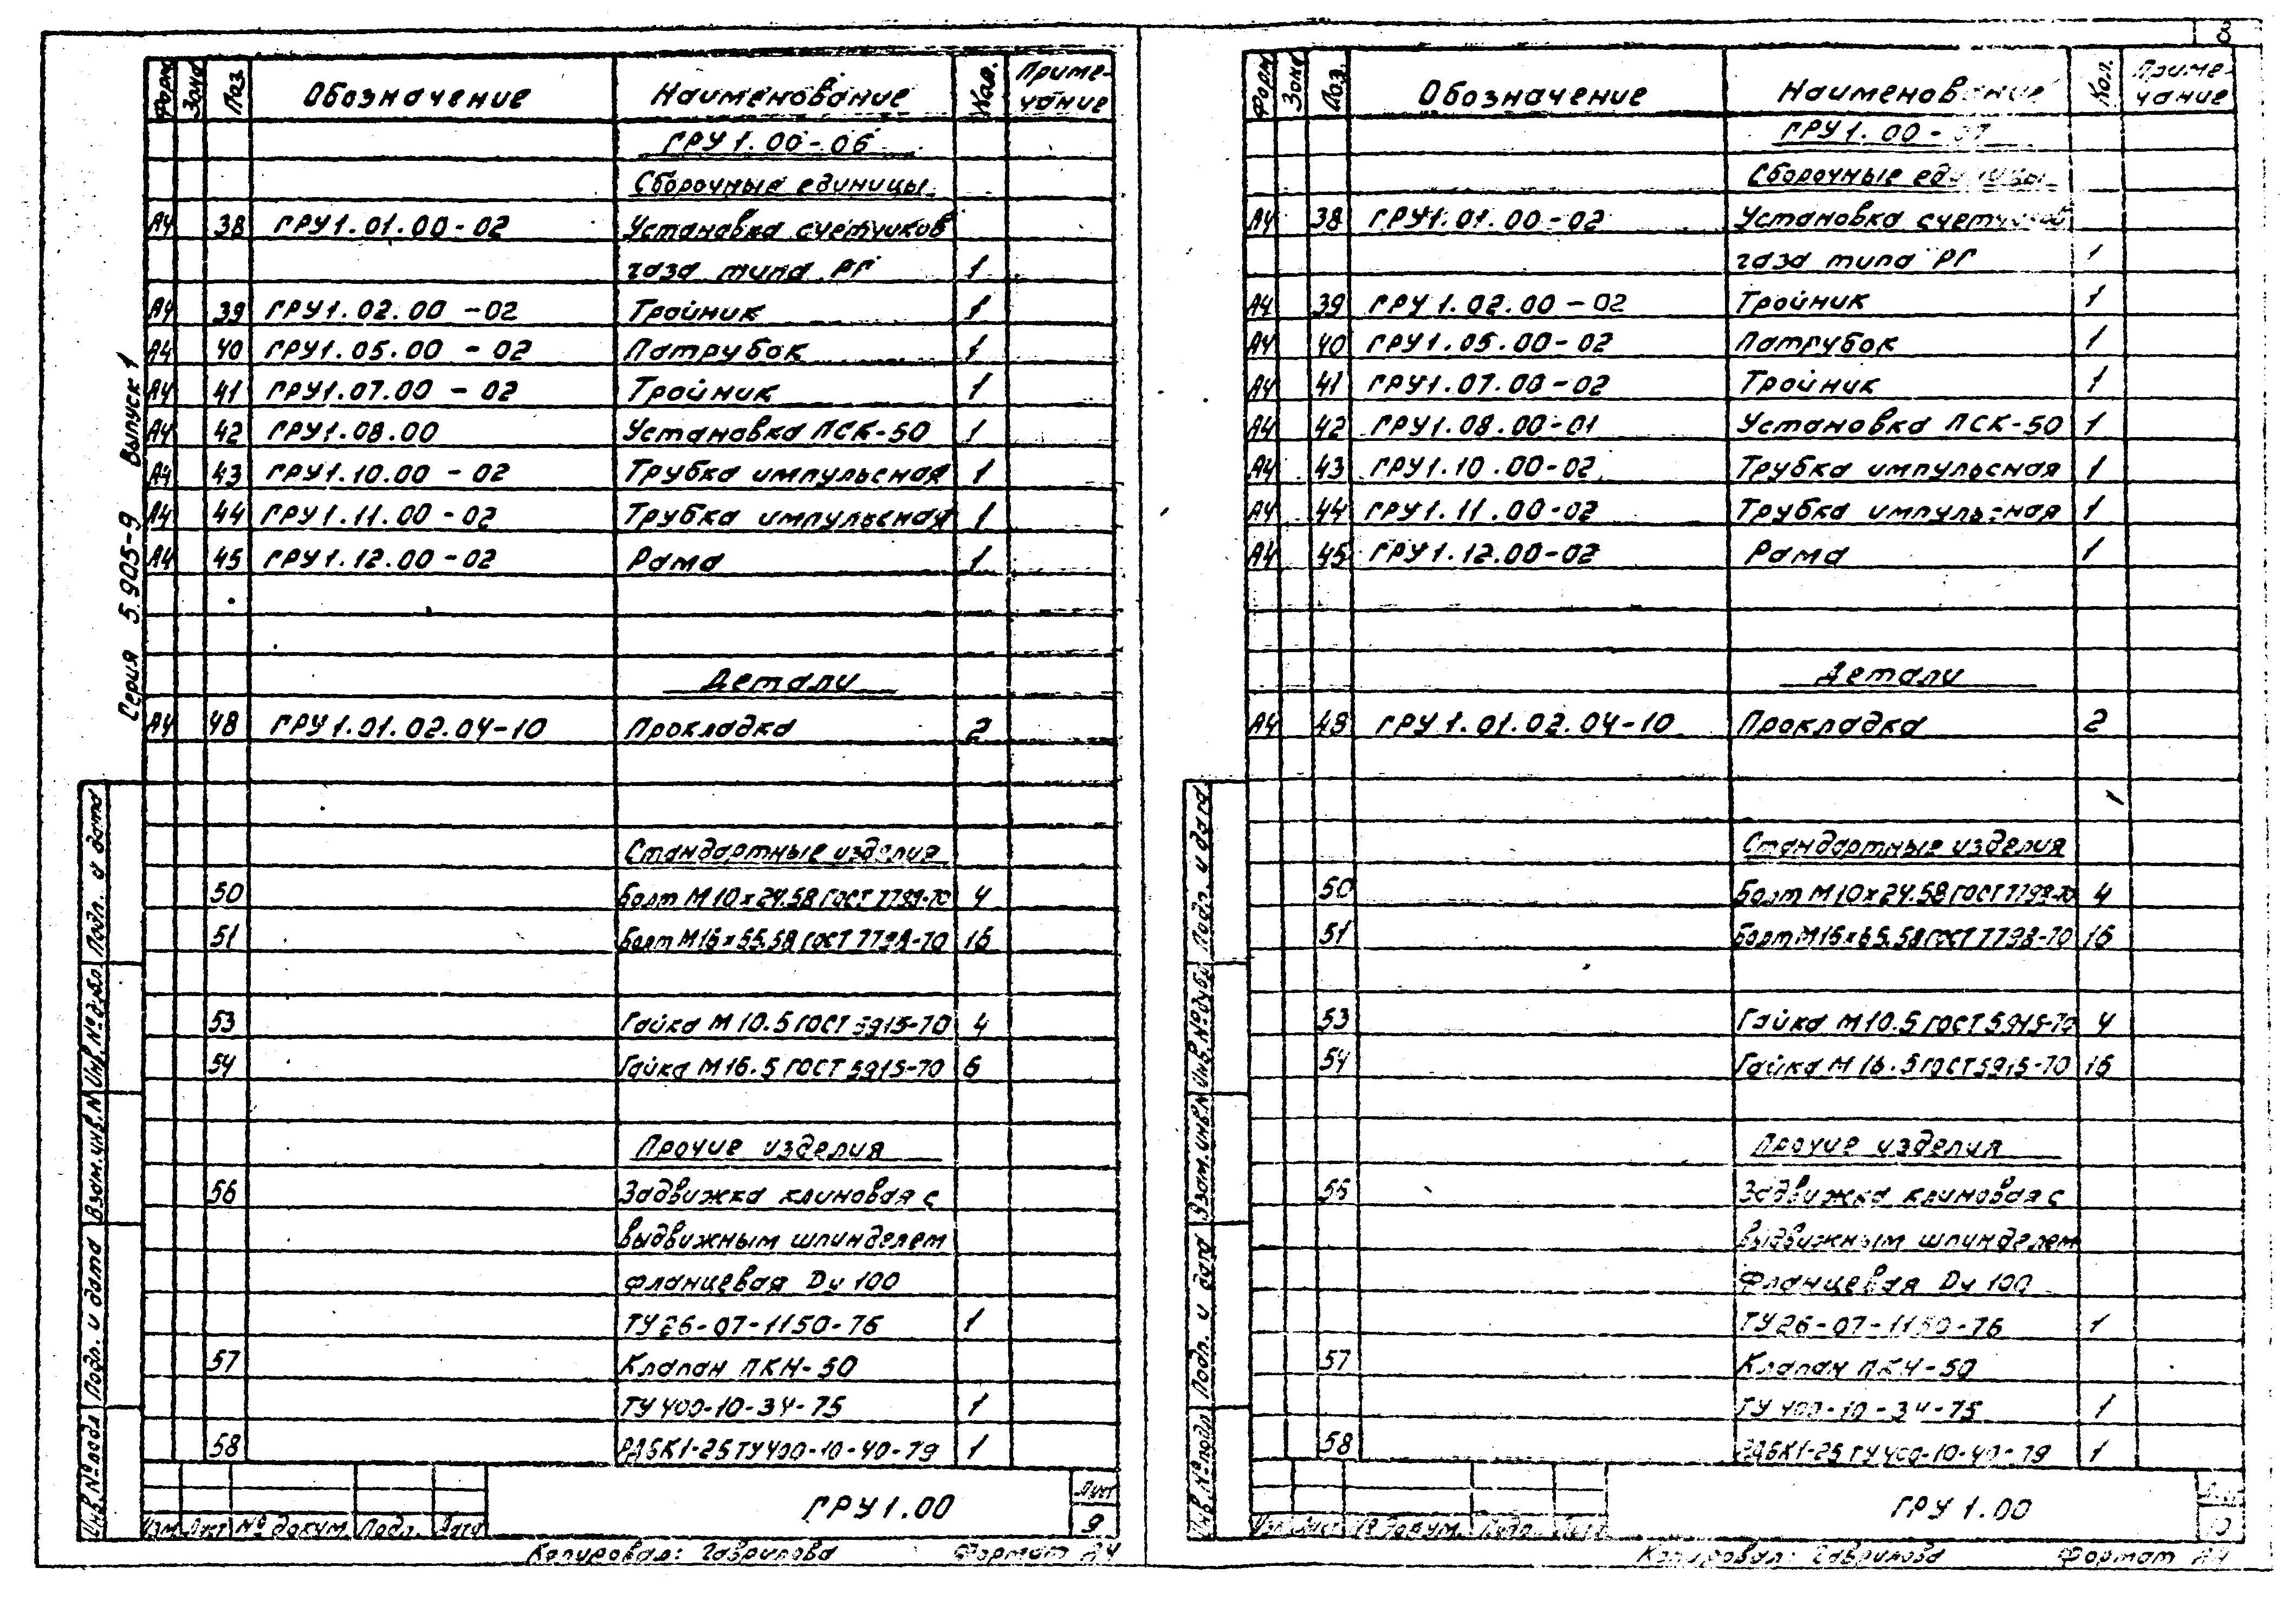 8
Серия 5.905-9 Выпуск 1
Форм Зона Поз. Обозначение Наименование Кол. Приме-
чание
ГРУ1.00-06
Сборочные единицы
А4 38 ГРУ1.01.00-02 Установка счетчиков
газа типа РГ 1
А4 39 ГРУ1.02.00-02 Тройник 1
А4 40 ГРУ1.05.00-02 Патрубок 1
А4 41 ГРУ1.07.00-02 Тройник 1
А4 42 ГРУ1.08.00 Установка ПСК-50 1
А4 43 ГРУ1.10.00-02 Трубка импульсная 1
А4 44 ГРУ1.11.00-02 Трубка импульсная 1
А4 45 ГРУ1.12.00-02 Рама 1
Детали
А4 48 ГРУ1.01.02.04-10 Прокладка 2
Стандартные изделия
50 Болт М10х24.58 ГОСТ 7798-70 4
51 Болт М16х55.58 ГОСТ 7798-70 16
53 Гайка М10.5 ГОСТ 5915-70 4
54 Гайка М16.5 ГОСТ 5915-70 6
Прочие изделия
56 Задвижка клиновая с
выдвижным шпинделем
фланцевая Dу 100
ТУ26-07-1150-76 1
57 Клапан ПКН-50
ТУ400-10-34-75 1
58 РДБК1-25 ТУ400-10-40-79 1
Инв.№подл Подп. и дата Взам.инв.№ Инв.№дубл. Подп. и дата
Изм Лист № докум. Подп. Дата
ГРУ1.00
Лист
9
Копировал: Гаврилова Формат А4
Форм Зона Поз. Обозначение Наименование Кол. Приме-
чание
ГРУ1.00-07
Сборочные единицы
А4 38 ГРУ1.01.00-02 Установка счетчиков
газа типа РГ 1
А4 39 ГРУ1.02.00-02 Тройник 1
А4 40 ГРУ1.05.00-02 Патрубок 1
А4 41 ГРУ1.07.00-02 Тройник 1
А4 42 ГРУ1.08.00-01 Установка ПСК-50 1
А4 43 ГРУ1.10.00-02 Трубка импульсная 1
А4 44 ГРУ1.11.00-02 Трубка импульсная 1
А4 45 ГРУ1.12.00-02 Рама 1
Детали
А4 48 ГРУ1.01.02.04-10 Прокладка 2
Стандартные изделия
50 Болт М10х24.58 ГОСТ 7798-70 4
51 Болт М16х65.58 ГОСТ 7798-70 16
53 Гайка М10.5 ГОСТ 5915-70 4
54 Гайка М16.5 ГОСТ 5915-70 16
Прочие изделия
56 Задвижка клиновая с
выдвижным шпинделем
фланцевая Dу 100
ТУ26-07-1150-76 1
57 Клапан ПКН-50
ТУ400-10-34-75 1
58 РДБК1-25 ТУ400-10-40-79 1
Инв.№подл Подп. и дата Взам.инв.№ Инв.№дубл Подп. и дата
Изм Лист № докум. Подп. Дата
ГРУ1.00
Лист
10
Копировал: Гаврилова Формат А4